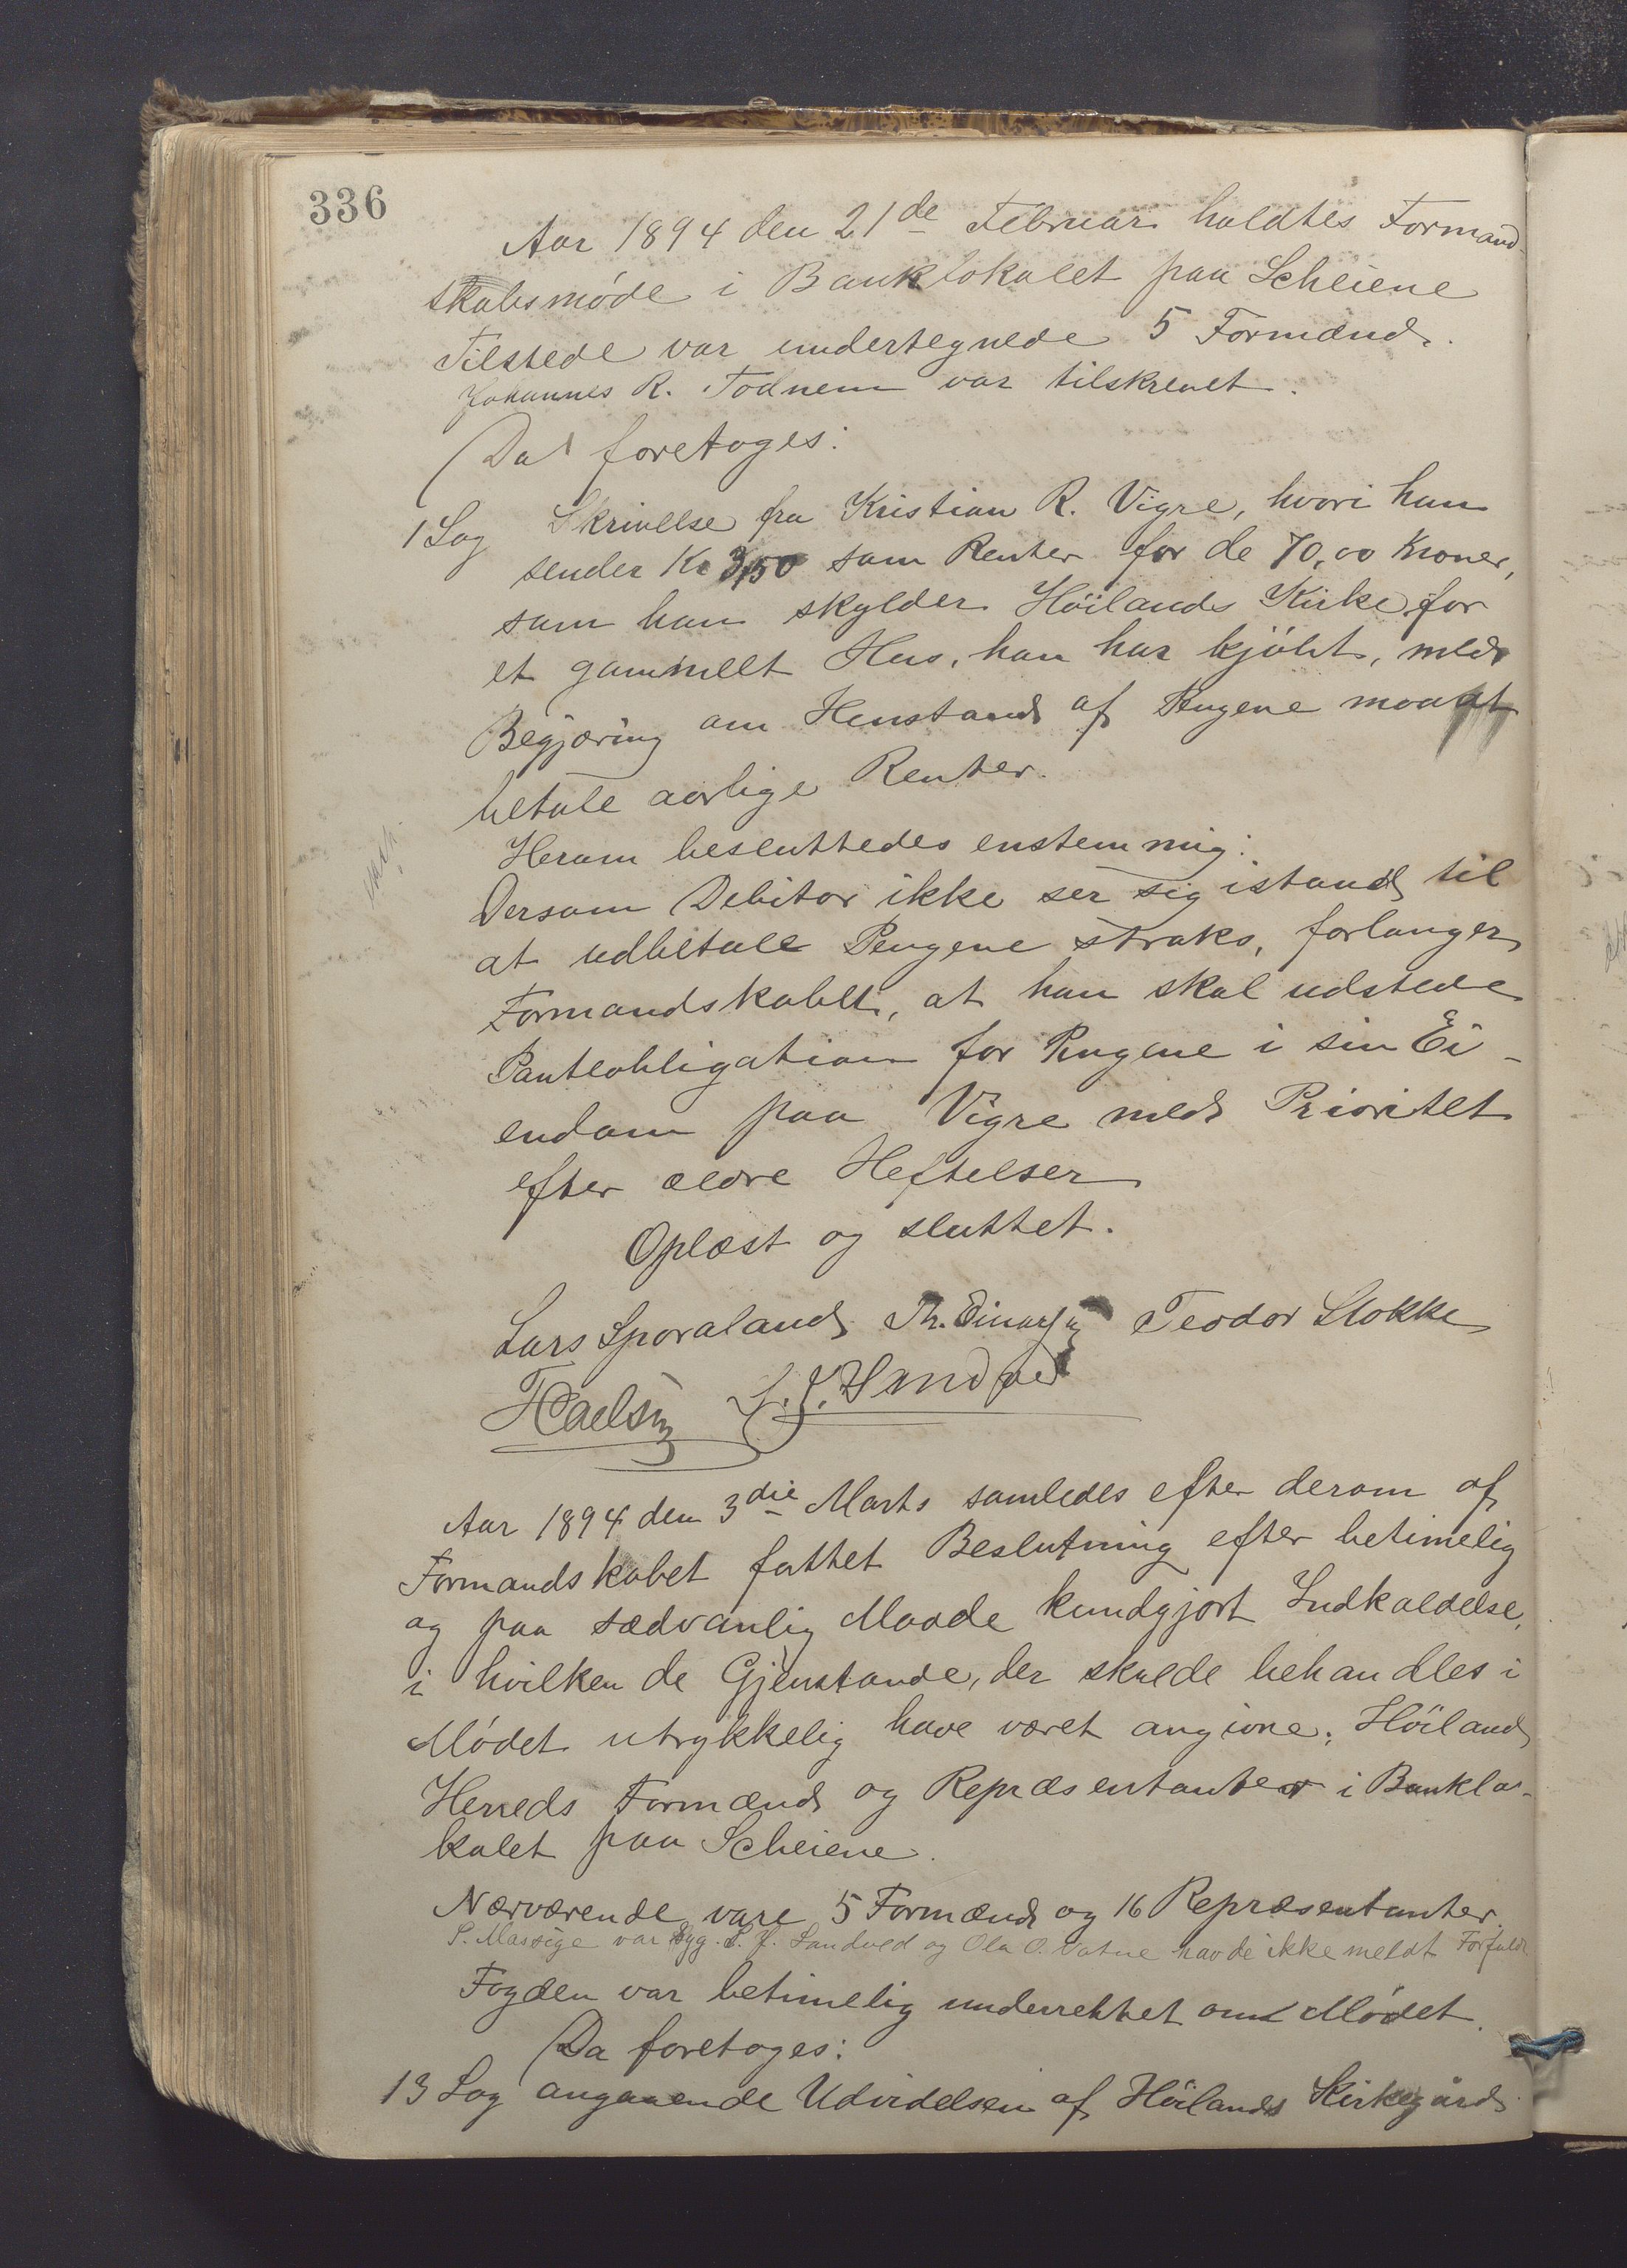 336
Aar 1894 den 21de Februar holdtes Formand-
skabsmøde i Banklokalet paa Scheiene
Tilstede var undertegnede 5 Formænd.
Johannes R. Todnem var tilskrevet.
Da foretoges:
1 Sag Skrivelse fra Kristian R. Vigre, hvori han
sender Kr 3,50 som Renter for de 70,00 Kroner,
som han skylder Höilands Kirke for
et gammelt Hus, han har kjöbt, med
Begjæring om Henstand af Pengene mod at
betale aarlige Renter.
Herom besluttedes enstemmig:
Dersom Debitor ikke ser sig istand til
at udbetale Pengene straks, forlanger
Formandskabet, at han skal udstede
Panteobligation for Pengene i sin Ei-
endom paa Vigre med Prioritet
efter ældre Heftelser
Oplæst og sluttet.
Lars Sporaland Th. Einarsen Teodor Stokke
Aar 1894 den 3die Marts samledes efter derom af
Formandskabet fattet Beslutning efter betimelig
og paa sædvanlig Maade kundgjort Indkaldelse,
i hvilken de Gjenstande, der skulde behandles i
Mödet utrykkelig have været angivne, Höiland
Herreds Formænd og Repræsentanter i Banklo-
kalet paa Scheiene.
Nærværende vare 5 Formænd og 16 Repræsentanter.
S. Massige var syg. S. J. Sandved og Ola O. Vatne havde ikke meldt Forfald
Fogden var betimelig underrettet om Mödet.
Da foretoges:
13 Sag angaaende Udvidelsen af Höilands Kirkegård